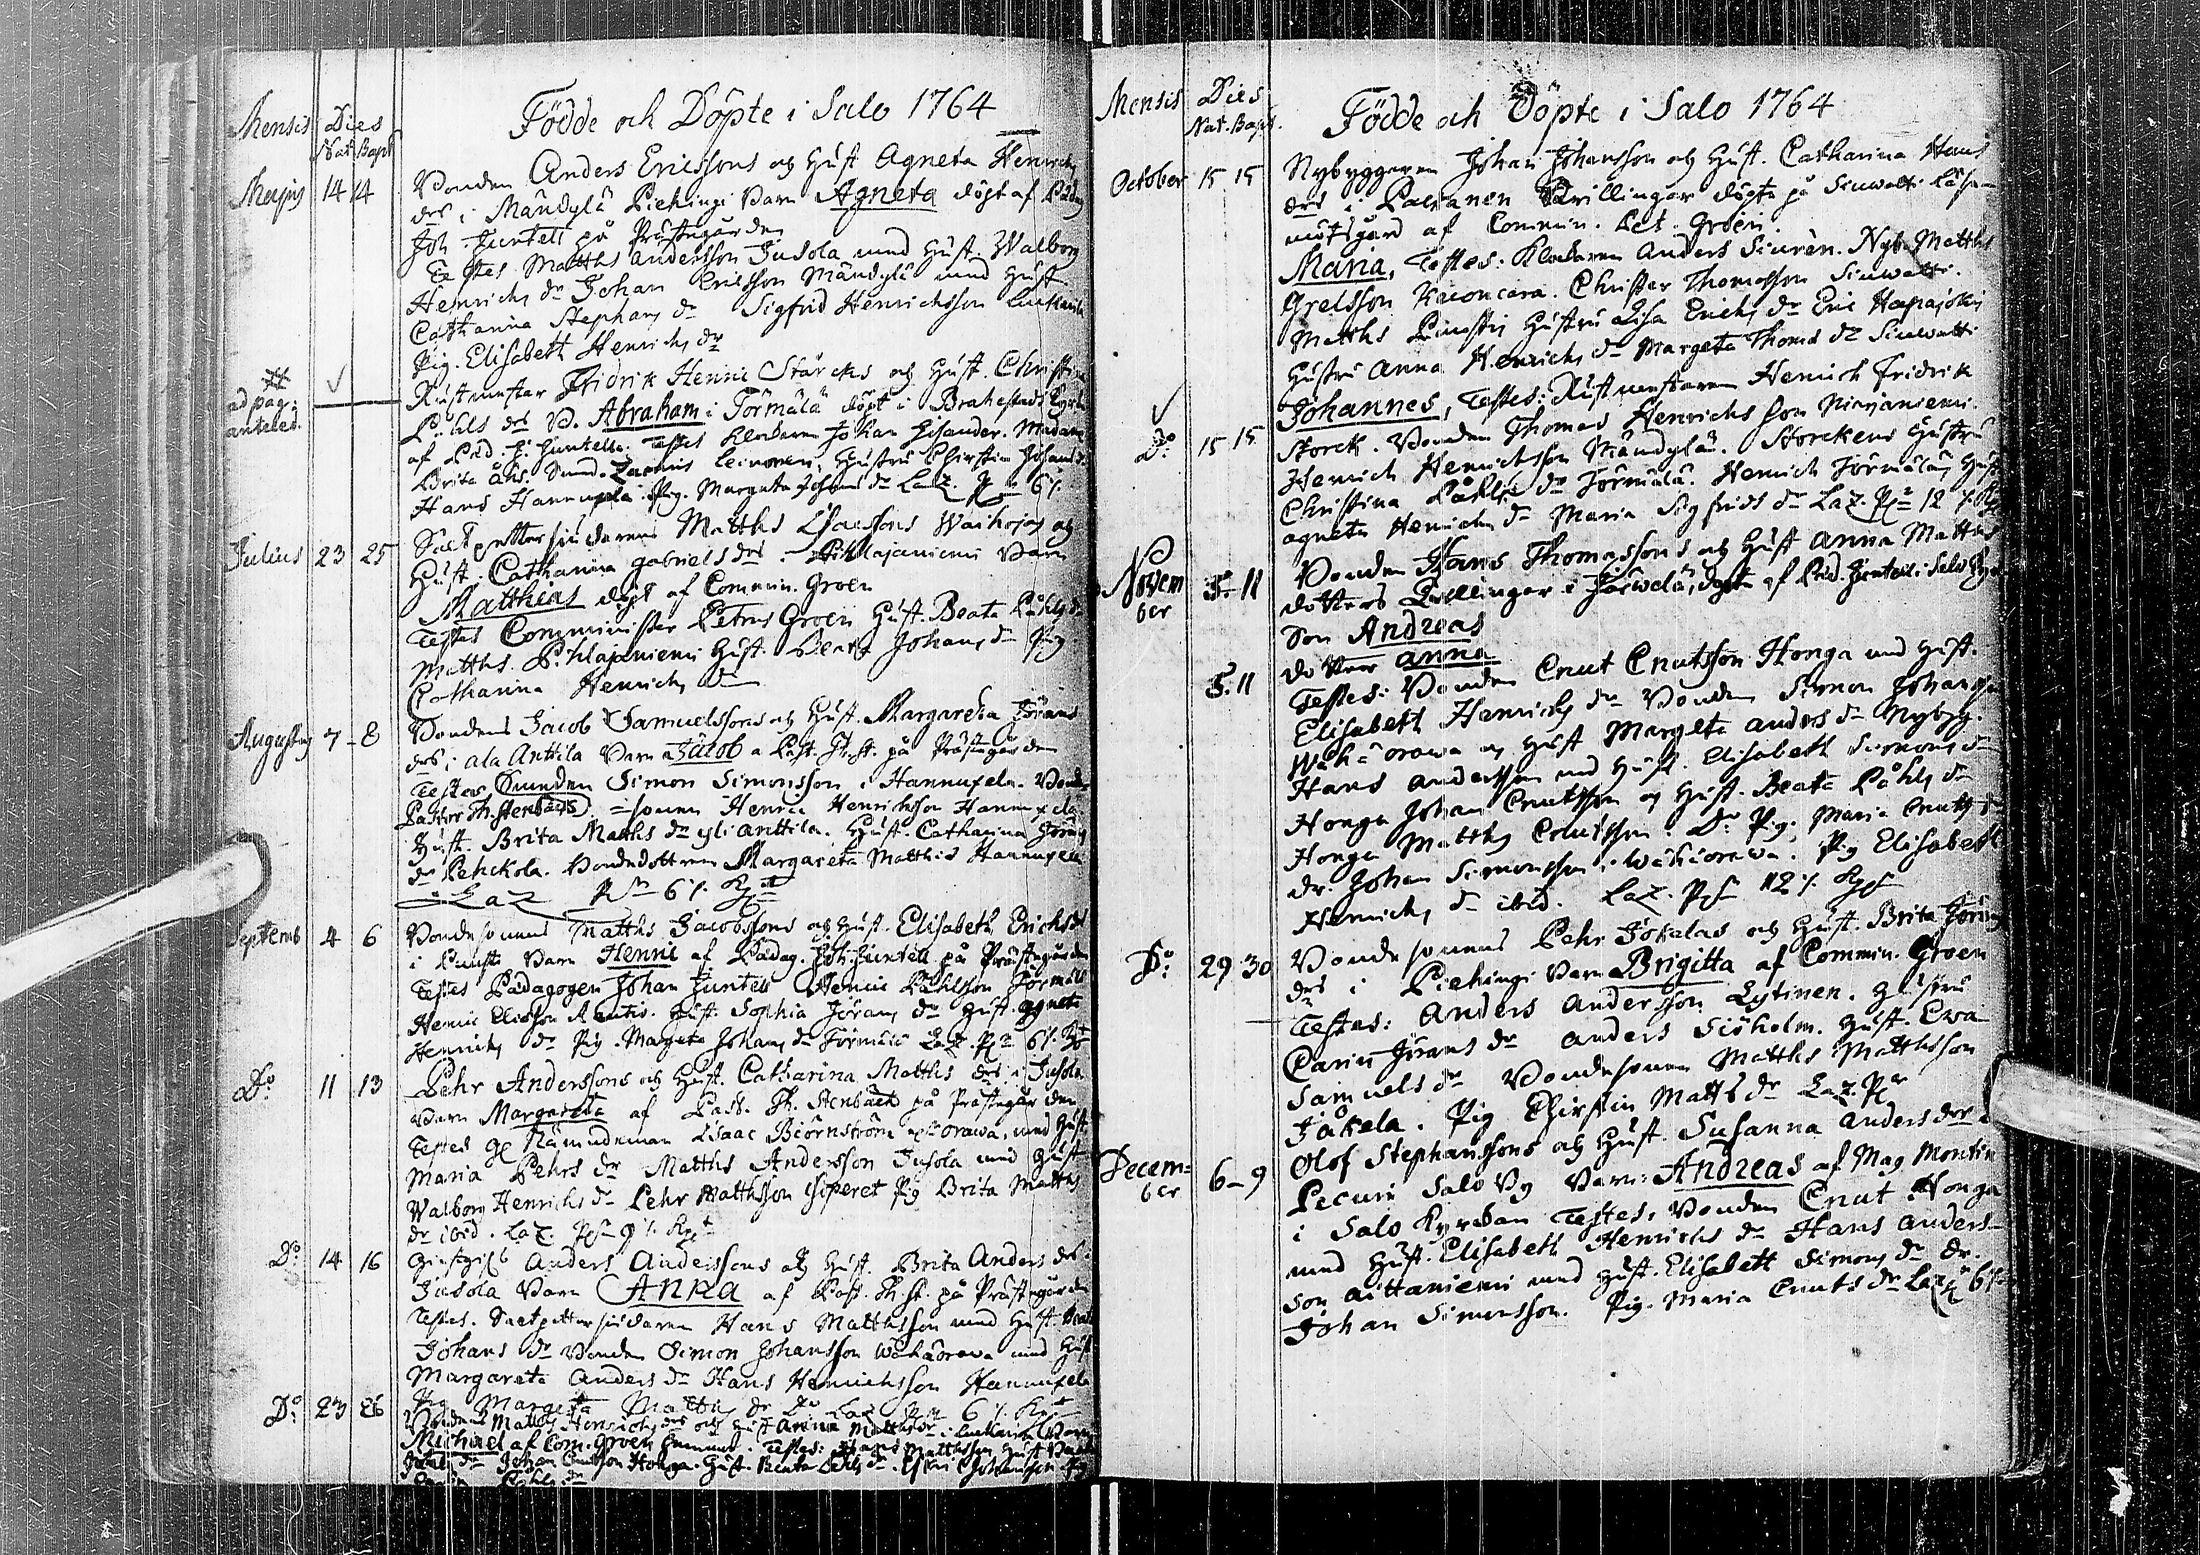 Födde och Döpte i Salo 1764
Mensis Dies
Nat. Bapt
Majus 14 14 Bonden Anders Ericssons og Hust. Agneta Henrichs
dr i Mändylä Piehingi Barn Agneta döpt af Pädag
Joh. Juntell på Prästegården
Testes Matths Andersson Jusola med Hust. Walborg
Henrichs dr Johan Ericsson Mändylä med Hust
Catharina Stephans dr Sigfrid Henrichsson
Pig. Elisabeth Henrichs dr
ad pag: anteced. Rustmästar Fridrik Henric Storcks og Hust. Christin
Påhls dr B. Abraham i Törmälä döpt i Brahestads Kyrka
af Päd. J. Juntell. Testes Klockaren Johan Hisander. Madam
Brita Åhs. Sund. Leinonen, Hustru Chirstin Johans dr
Hans Hannuxela. Pig. Margeta Johans dr Laz. 6
Julius 23 25 Saltpettersiudaren Matths Isacssons Waihojas og
Hust. Catharina Gabriels dr i Pihlajaniemi Barn
Matthias döpt af Commin. Groen
Testes Comminister Petrus Groen Hust. Beata Påhls dr
Matths. Pihlajaniemi Hust. Beata Johans dr Pig.
Catharina Henrichs dr
Augustus 7-8 Bondens Jacob Samuelssons og Hust. Margaretha Jörans
dr i ala Anttila Barn Jacob a Past. Th. St. på Prästegården
Testes Simon Simonsson i Hannuxela. Bonde
Pastor Th. Stenbäck sonen Henric Henrichsson Hannuxela
Hust. Brita Matths dr yli Anttila. Hust. Catharina Jörans
dr Pehckola. Bondedottren Margareta Matths Hannuxela
Laz 6
Septemb 4 6 Bondesonens Matths Jacobssons og Hust. Elisabeth Erichs dr
i Barn Henric af Pädag. Joh. Juntell på Prästegården
Testes Pädagogen Johan Juntell Henric Påhlsson Törmälä
Henric Ericsson. Hust. Sophia Jörans dr Hust. Agneta
Henrichs dr Pig. Margeta Johans dr Törmälä Laz. 6
Do 11 13 Pehr Anderssons og Hust. Catharina Matths dr i Jusola
Barn Margareta af Past. Th. Stenbäck på Prästegården
Testes Nämndeman Isaac Biörnström orawa, med Hust
Maria Pehrs dr Matths Andersson Jusola med Hust
Walborg Henrichs dr Pehr Matthsson Siperet Pig Brita Matths
dr ibid. Laz. 9
Do 14 16 Anders Anderssons og Hust. Brita Anders dr i
Jusola Barn Anna af Past. Th. St. på Prästegården
Testes. Saltpettersiudaren Hans Matthsson med Hust
Johans dr Bonden Simon Johansson Wähäorawa med Hust.
Margareta Anders dr Hans Henrichsson Hannuxela
Pig Margeta Matths dr Do Laz 6
Do 23 26 Bonden Matths Henrichs och Hust Anna Matths dr i Barn
Michael af Com. Groen. Testes: Hans Matthsson Hust
dr Johan Cnutsson Honga. Hust. Beata Påhls dr. Johansson
Påhls dr
Födde och Döpte i Salo 1764
Mensis Dies
Nat. Bapt.
October 15 15 Nybyggaren Johan Johansson og Hust. Catharina Hans
dr i Palkanen Tvillingar döpte på Siuwatti Läse
mötsgård af Commin. Pet. Groen.
Maria, Testes: Klockaren Anders Siuren. Nyb. Matths
Grelsson. Christer Thomasson Siuwatti.
Matths Hustru Lisa Erichs dr Eric Haapajoki
Hustru Anna Henrichs dr Margeta Thoms dr Siuwatti
Do 15 15 Johannes, Testes: Rustmästaren Henrich Fridrik
Storck. Bonden Thomas Henrichsson Niemi.
Henrich Henrichsson Mändylä. Storckens Hustru
Christina Påhls dr Törmälä. Henrich Törmäläs Hust
Agneta Henrichs dr Maria Sigfrids dr Laz. 12
November 5. 11 Bonden Hans Thomassons og Hust Anna Matths
dotters Tvillingar i Järwelä, döpte af Päd. Juntell i Salo Kyrk
Son Andreas
5. 11 dotter Anna
Testes: Bonden Cnut Cnutsson Honga med Hust.
Elisabeth Henrichs dr Bonden Simon Johansson
Wähäorawa og Hust Margeta Anders dr Nybyg.
Hans Andersson med Hust. Elisabeth Simons dr
Honga Johan Cnutsson og Hust. Beata Påhls dr
Honga Matths Cnutsson Do Pig. Maria Cnuts dr
dr. Johan Simonsson i Wähäorawa. Pig Elisabeth
Henrichs dr ibid. Laz. 12
Do 29 30 Bondesonens Pehr Jokelas og Hust. Brita Jörans
dr i Piehingi Barn Brigitta af Commin. Groen
Testes: Anders Andersson Lytinen. Hustru
Carin Jörans dr Anders Siöholm. Hust. Ewa
Samuels dr Bondesonen Matths Matthsson
Jåkela. Pig Chirstin Matts dr Laz.
December 6-9 Olof Stephanssons og Hust. Susanna Anders dotter i
Salo By Barn: Andreas af Mag Montin
i Salo Kyrckan Testes, Bonden Cnut Honga
med Hust. Elisabeth Henrichs dr Hans Anders-
son Aittaniemi med Hust. Elisabett Simons dr Dr.
Johan Simonsson. Pig. Maria Cnuts dr Laz 6